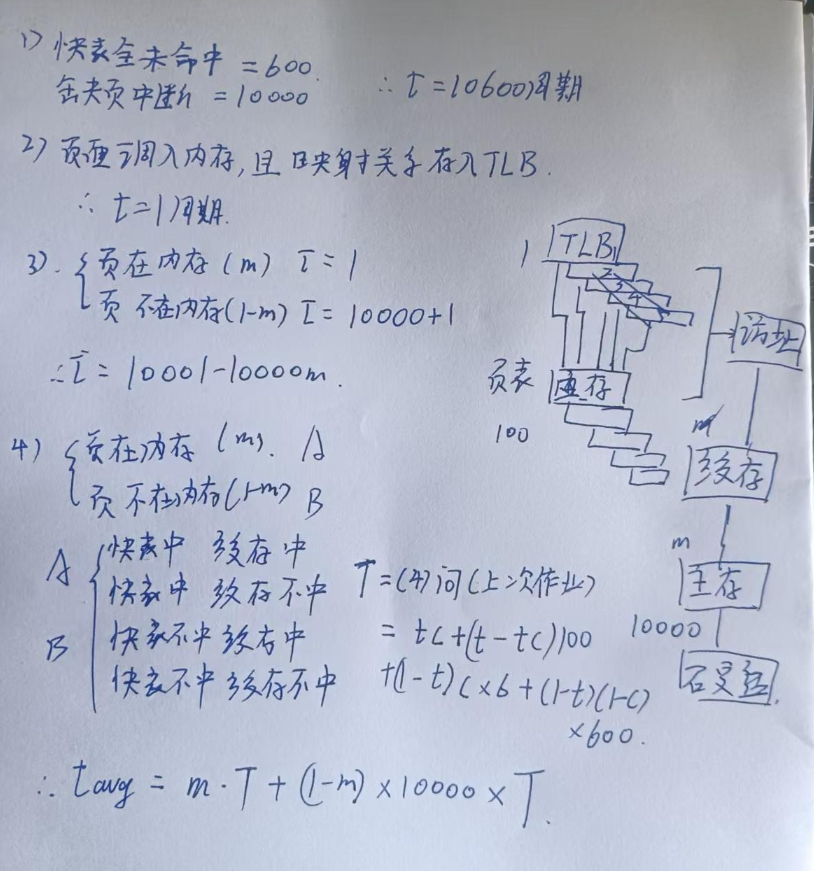 1) 快表全未命中 = 600
缺页中断 = 10000 ∴ t = 10600周期
2) 页面调入内存, 且映射关系存入TLB.
∴ t = 1周期.
3). { 页在内存 (m) t̄ = 1
页不在内存(1-m) t̄ = 10000+1
∴ t̄ = 10001-10000m.
4) { 页在内存 (m). A
页不在内存(1-m) B
A { 快表中 缓存中
快表中 缓存不中
B 快表不中 缓存中
快表不中 缓存不中
T = (4)问(上次作业)
= tc+(t-tc)100
+(1-t)c×6+(1-t)(1-c)
×600.
∴ tavg = m·T + (1-m)×10000×T.
1 TLB1
2
3
4
访址
页表 主存
100
m
缓存
m
主存
10000